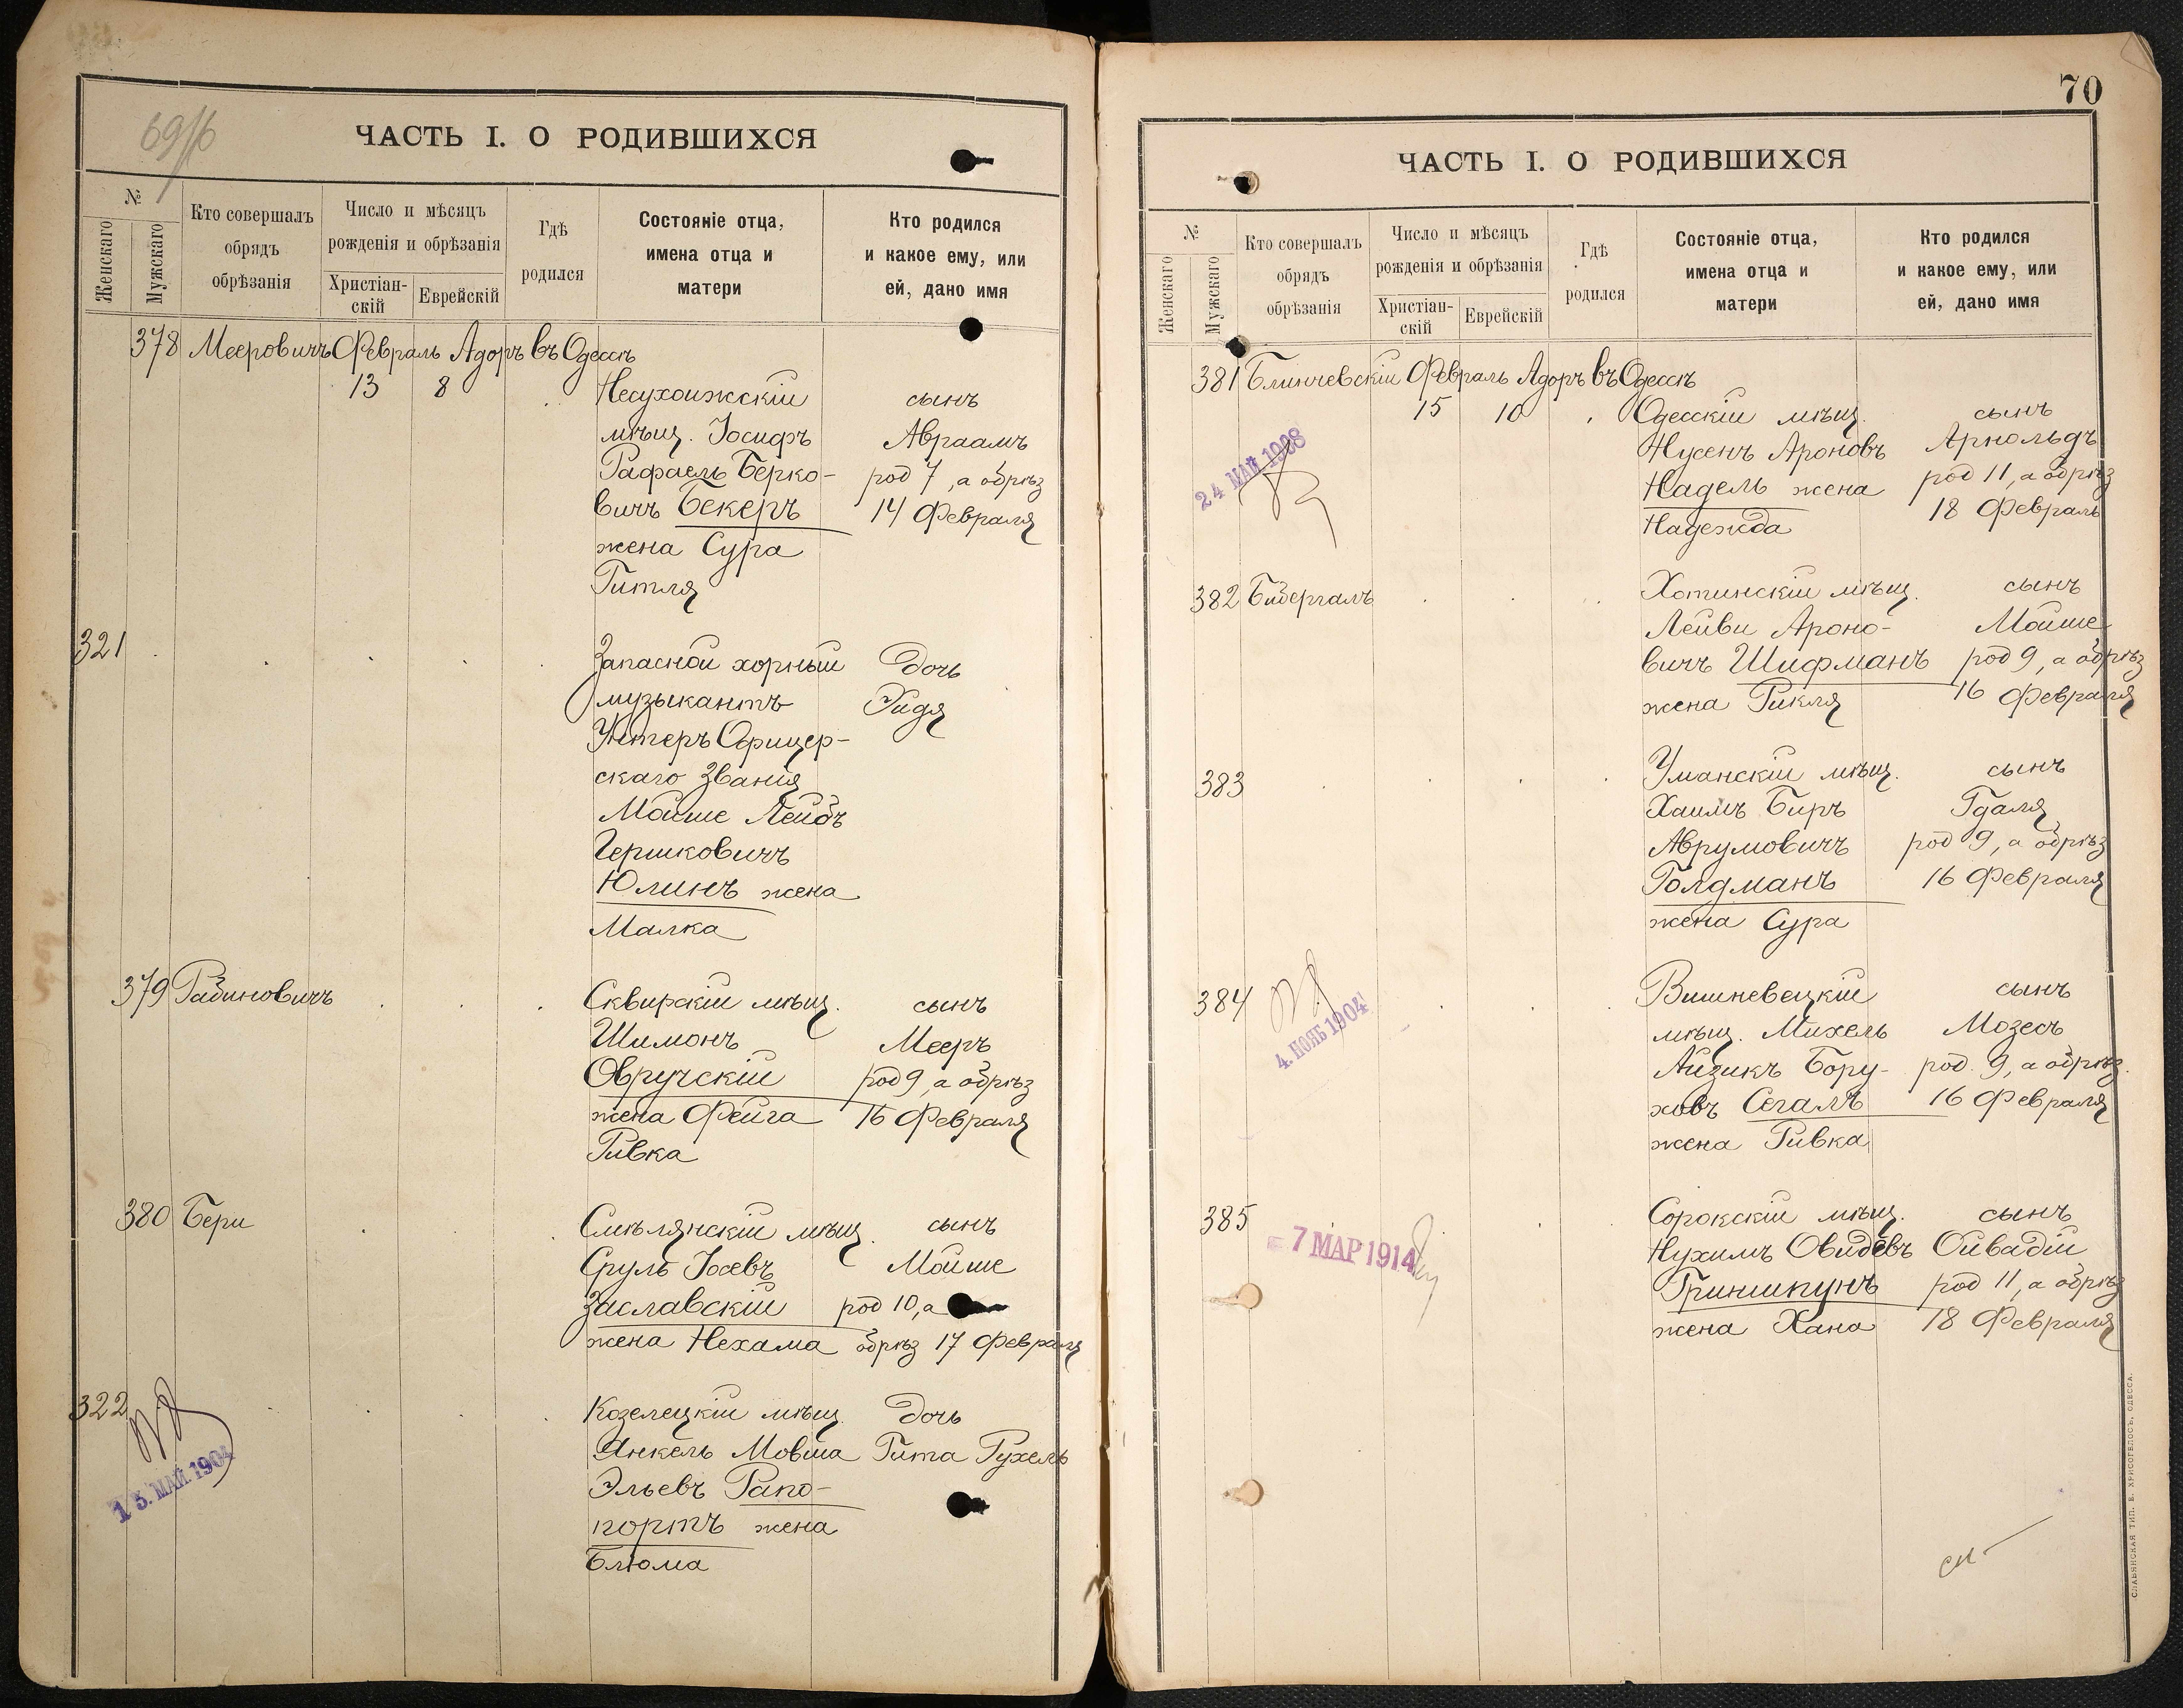 69/б
ЧАСТЬ I. О РОДИВШИХСЯ
№
Женскаго
Мужскаго
Кто совершалъ
обрядъ
обрѣзанія
Число и мѣсяцъ
рожденія и обрѣзанія
Христіан-
скій
Еврейскій
Гдѣ
родился
Состояніе отца,
имена отца и
матери
Кто родился
и какое ему, или
ей, дано имя
378 Мееровичъ Февраль Адоръ въ Одессѣ
13 8 Несухоижскій сынъ
мѣщ. Іосифъ Авраамъ
Рафаель Берко- род 7, а обрѣз
вичъ Бекеръ 14 Февраля
жена Сура
Гитля
321 Запасной хорный дочь
музыкантъ Хидя
Унтеръ Офицер-
скаго Званія
Мойше Лейбъ
Гершковичъ
Юлинъ жена
Малка
379 Рабиновичъ Сквирскій мѣщ. сынъ
Шимонъ Мееръ
Овручскій род 9, а обрѣз
жена Фейга 16 Февраля
Ривка
380 Бери Смѣлянскій мѣщ. сынъ
Сруль Іосевъ Мойше
Заславскій род 10, а
жена Нехама обрѣз 17 Февраля
322 Козелецкій мѣщ. дочь
Янкель Мовша Гита Рухель
Эльевъ Рапо-
портъ жена
Блюма
15. МАЙ. 1904
70
ЧАСТЬ I. О РОДИВШИХСЯ
№
Женскаго
Мужскаго
Кто совершалъ
обрядъ
обрѣзанія
Число и мѣсяцъ
рожденія и обрѣзанія
Христіан-
скій
Еврейскій
Гдѣ
родился
Состояніе отца,
имена отца и
матери
Кто родился
и какое ему, или
ей, дано имя
381 Блинчевскій Февраль Адоръ въ Одессѣ
15 10 Одесскій мѣщ. сынъ
Нусенъ Ароновъ Арнольдъ
Надель жена род 11, а обрѣз
Надежда 18 Февраля
24 МАЙ 1908
382 Бидергалъ Хотинскій мѣщ. сынъ
Лейви Ароно- Мойше
вичъ Шифманъ род 9, а обрѣз
жена Рикля 16 Февраля
383 Уманскій мѣщ. сынъ
Хаимъ Биръ Гдаля
Аврумовичъ род 9, а обрѣз
Голдманъ 16 Февраля
жена Сура
384 Вишневецкій сынъ
мѣщ. Михель Мозесъ
Айзикъ Бору- род. 9, а обрѣз.
ховъ Сегалъ 16 Февраля
жена Ривка
4. НОЯБ 1904
385 Сорокскій мѣщ. сынъ
Нухимъ Овидевъ Ойвадій
Гриншпунъ род 11, а обрѣз
жена Хана 18 Февраля
7 МАР 1914
СЛАВЯНСКАЯ ТИП. Е. ХРИСОГЕЛОСЪ, ОДЕССА.